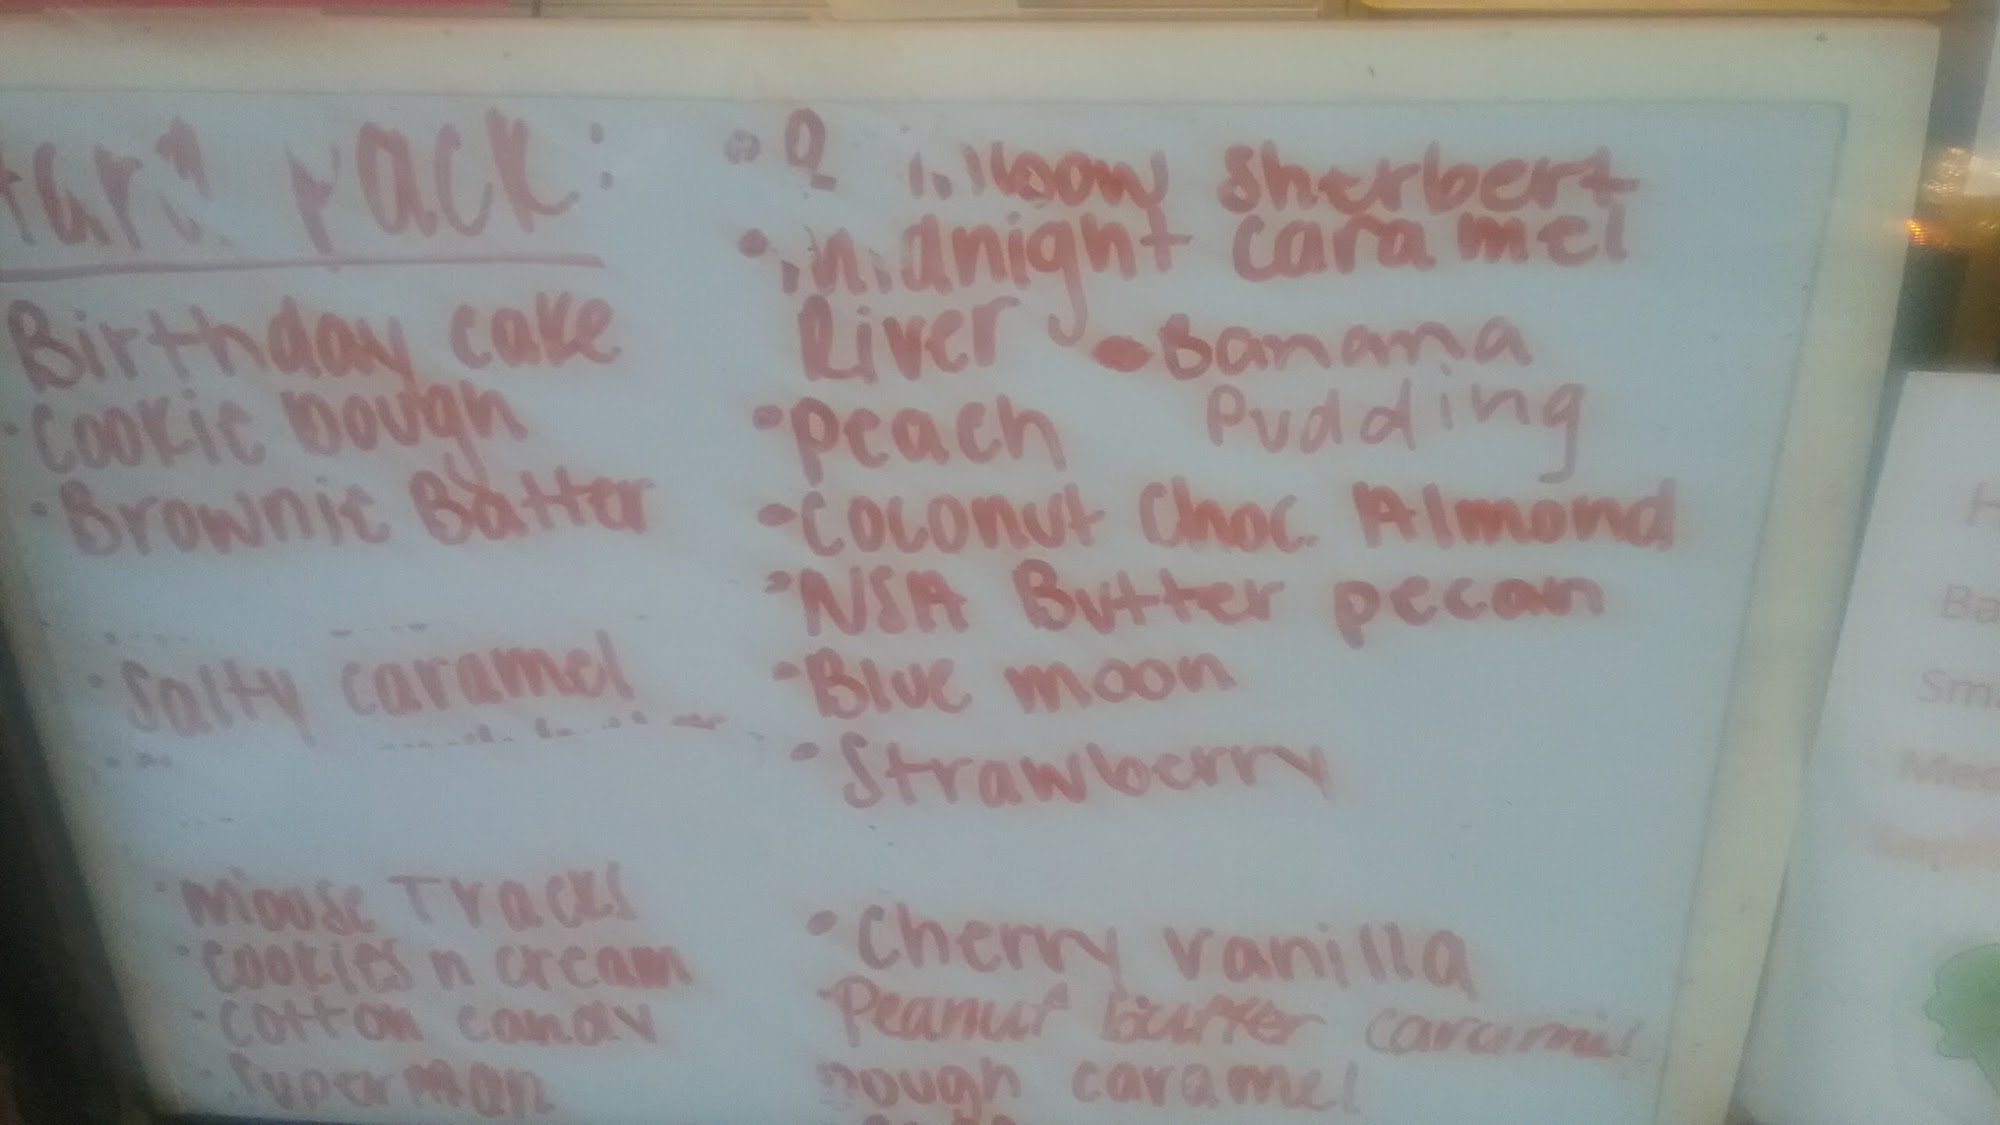 Pack:
Birthday cake
• Cookie Dough
• Brownie Batter
• Salty caramel
• Moose Tracks
• Cookies n cream
• cotton candy
• Superman
• Sherbert
• Midnight caramel
River
• Banana
Pudding
• Peach
• Coconut Choc. Almond
• NSA Butter pecan
• Blue moon
• Strawberry
• Cherry vanilla
• Peanut butter
Dough caramel